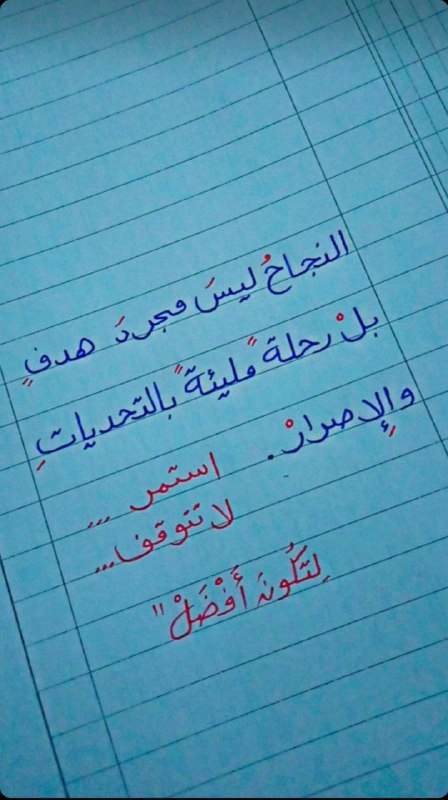 النجاحُ ليسَ مجردَ هدفٍ
بلْ رحلة ً مليئة ً بالتحدياتِ
والإِصرارْ.
استمر ...
لا تتوقف...
لِتَكُونَ أَفْضَلْ "